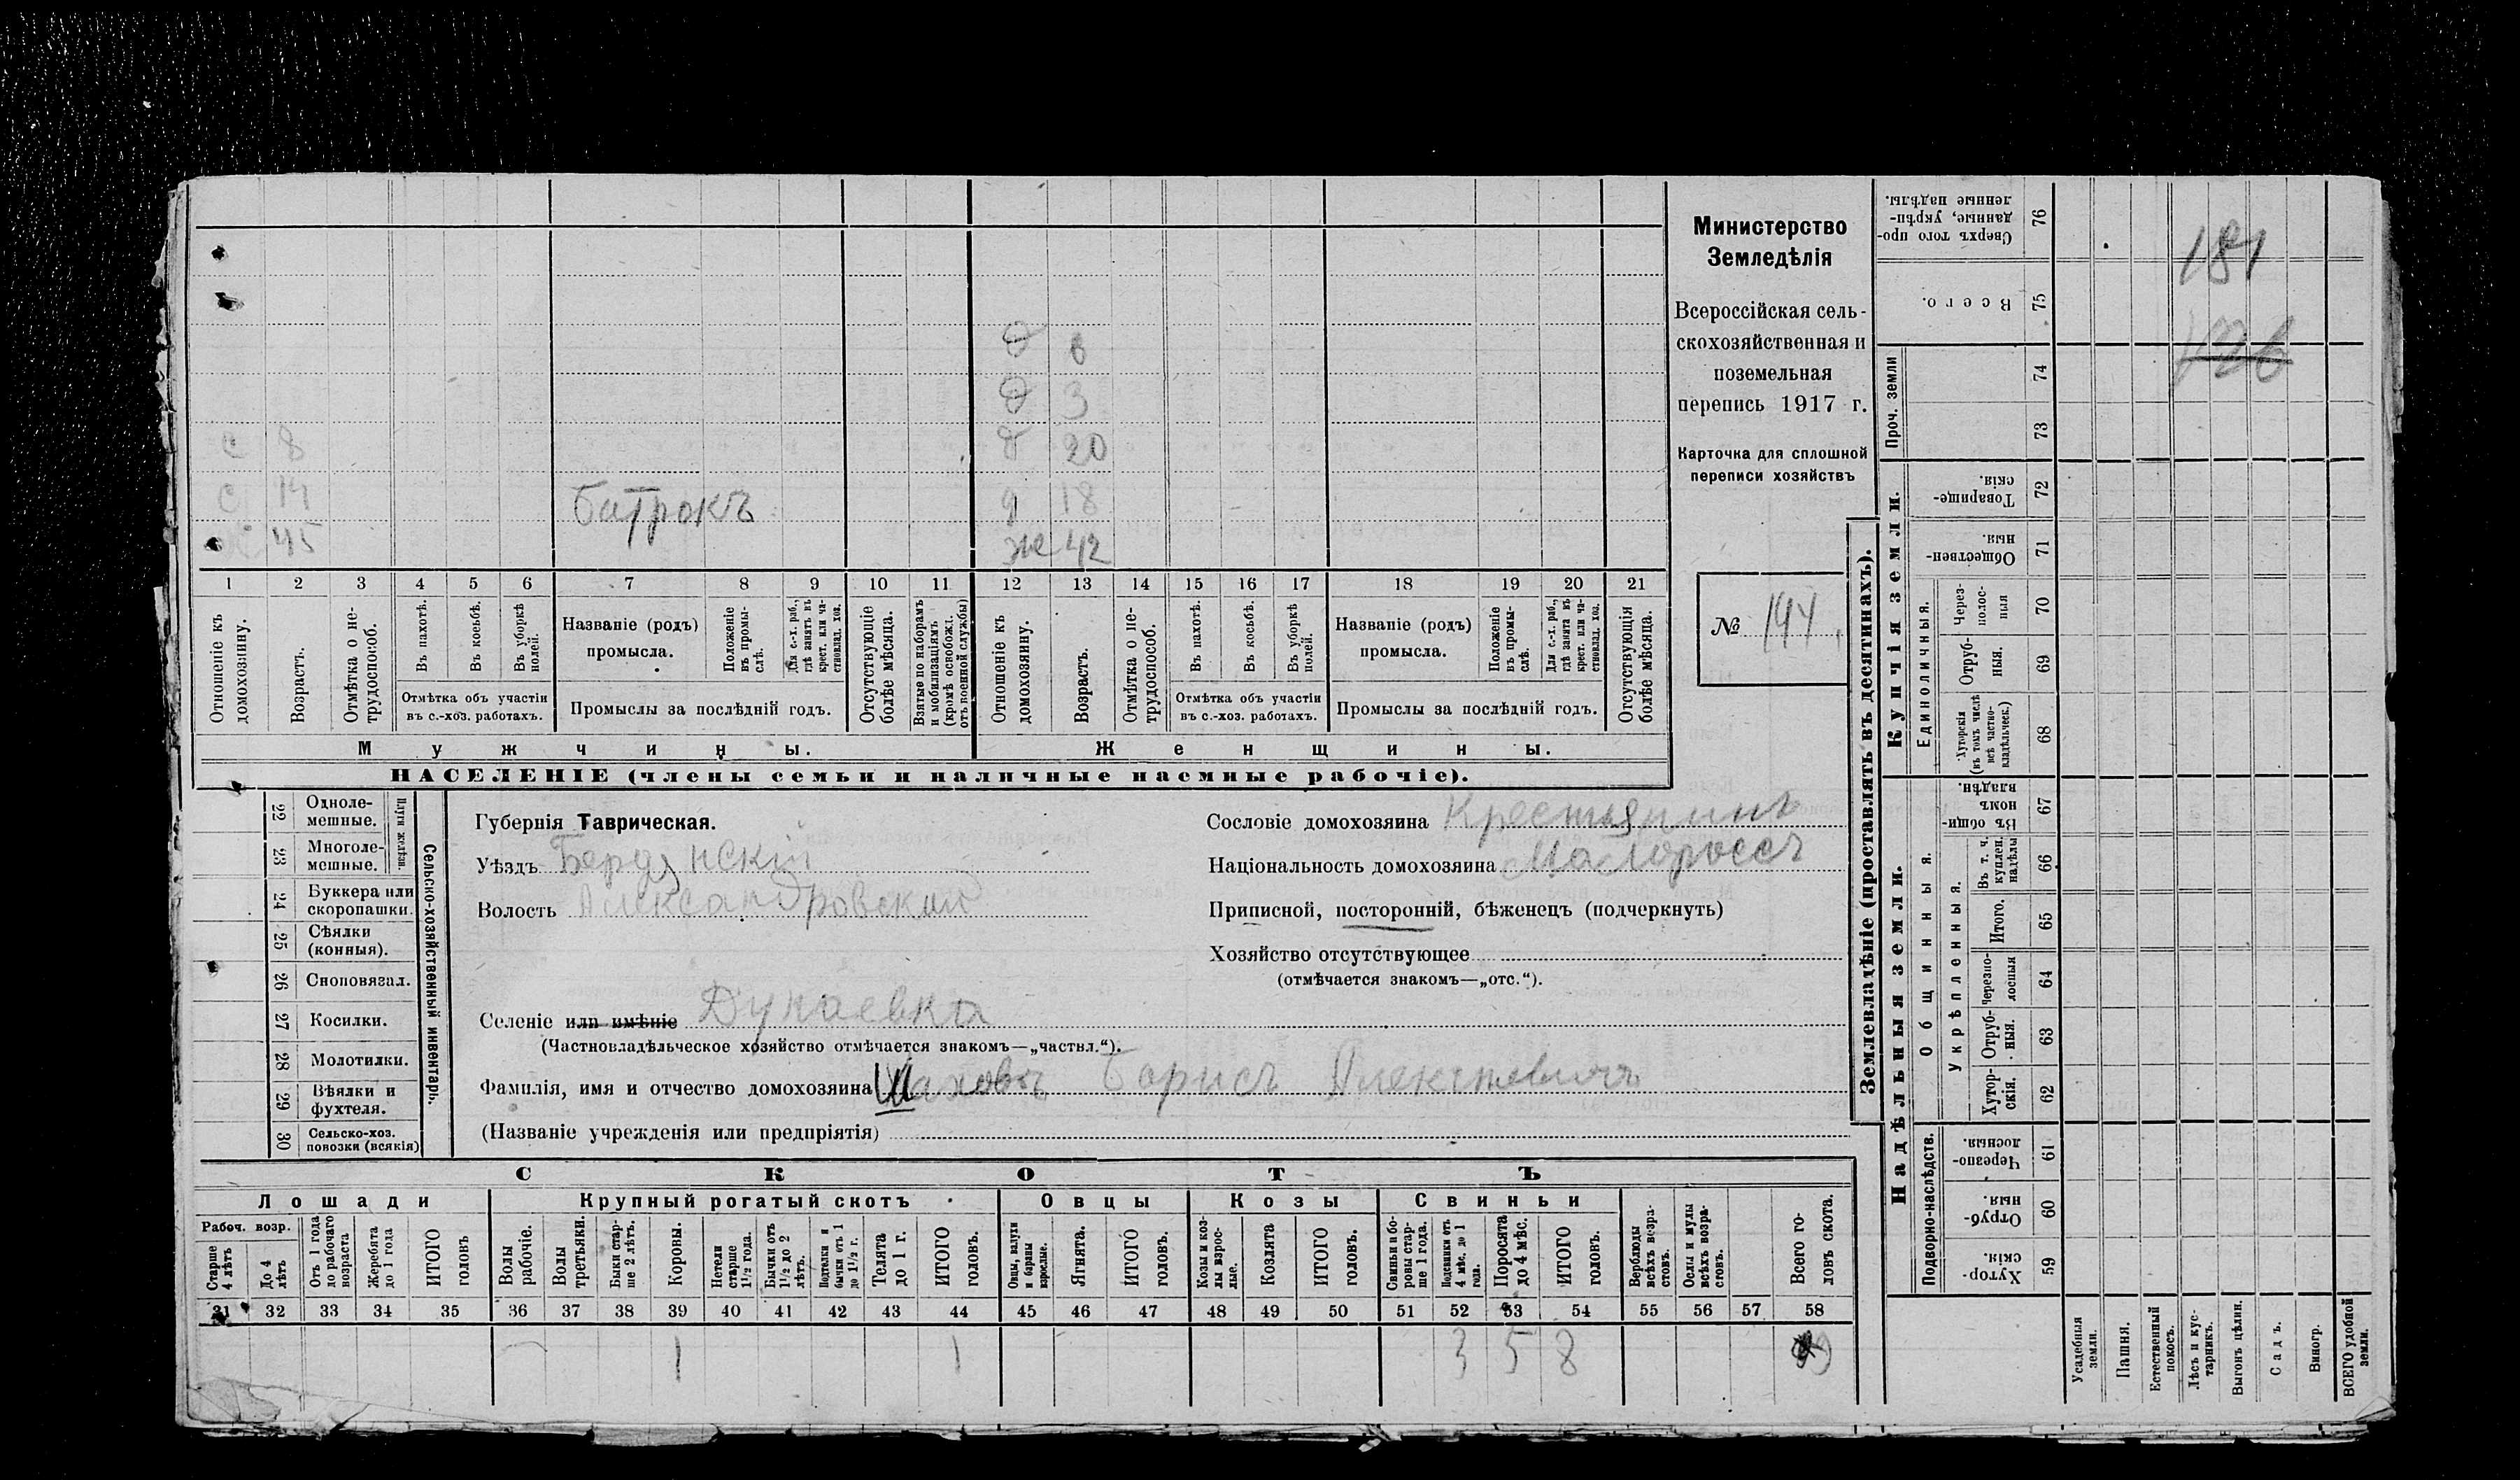 Министерство
Земледѣлія
Всероссійская сель-
скохозяйственная и
поземельная
перепись 1917 г.
Карточка для сплошной
переписи хозяйствъ
№ 144
181
126
Ѳ 6
Ѳ 3
д 20
д 18
же 42
с 8
с 14
45
батрокъ
1 2 3 4 5 6 7 8 9 10 11 12 13 14 15 16 17 18 19 20 21
Отношеніе къ домохозяину.
Возрастъ.
Отмѣтка о не-трудоспособ.
Въ пахотѣ.
Въ косьбѣ.
Въ уборкѣ полей.
Отмѣтка объ участіи въ с.-хоз. работахъ.
Названіе (родъ) промысла.
Положеніе въ промы-слѣ.
Для с.-х. раб., гдѣ занятъ въ крест. или ча-стновлад. хоз.
Промыслы за послѣдній годъ.
Отсутствующіе болѣе мѣсяца.
Взятые по наборамъ и мобилизаціямъ (кромѣ освобожд. отъ военной службы)
Отношеніе къ домохозяину.
Возрастъ.
Отмѣтка о не-трудоспособ.
Въ пахотѣ.
Въ косьбѣ.
Въ уборкѣ полей.
Отмѣтка объ участіи въ с.-хоз. работахъ.
Названіе (родъ) промысла.
Положеніе въ промы-слѣ.
Для с.-х. раб., гдѣ занята въ крест. или ча-стновлад. хоз.
Промыслы за послѣдній годъ.
Отсутствующія болѣе мѣсяца.
Мужчины.
Женщины.
НАСЕЛЕНІЕ (члены семьи и наличные наемные рабочіе).
22 Одноле-мешные.
23 Многоле-мешные.
Плуги желѣзн.
24 Буккера или скоропашки.
25 Сѣялки (конныя).
26 Сноповязал.
27 Косилки.
28 Молотилки.
29 Вѣялки и фухтеля.
30 Сельско-хоз. повозки (всякія)
Сельско-хозяйственный инвентарь.
Губернія Таврическая.
Уѣздъ Бердянскій
Волость Александровская
Селеніе или имѣніе Дунаевка
(Частновладѣльческое хозяйство отмѣчается знакомъ—„частвл.“).
Фамилія, имя и отчество домохозяина Шаховъ Борисъ Алексѣевичъ
(Названіе учрежденія или предпріятія)
Сословіе домохозяина Крестьянинъ
Національность домохозяина Малороссъ
Приписной, посторонній, бѣженецъ (подчеркнуть)
Хозяйство отсутствующее
(отмѣчается знакомъ—„отс.“).
СКОТЪ
Лошади
Рабоч. возр.
Старше 4 лѣтъ
До 4 лѣтъ
Отъ 1 года до рабочаго возраста
Жеребята до 1 года
ИТОГО головъ
Крупный рогатый скотъ
Волы рабочіе.
Волы третьяки.
Быки стар-ше 2 лѣтъ.
Коровы.
Нетели старше 1½ года.
Бычки отъ 1½ до 2 лѣтъ.
Подтелки и бычки отъ 1 до 1½ г.
Телята до 1 г.
ИТОГО головъ.
Овцы
Овцы, валухи и бараны взрослые.
Ягнята.
ИТОГО головъ.
Козы
Козы и коз-лы взрос-лые.
Козлята
ИТОГО головъ.
Свиньи
Свиньи и бо-ровы стар-ше 1 года.
Подсвинки отъ 4 мѣс. до 1 года.
Поросята до 4 мѣс.
ИТОГО головъ.
Верблюды всѣхъ возра-стовъ.
Ослы и мулы всѣхъ возра-стовъ.
Всего го-ловъ скота.
31 32 33 34 35 36 37 38 39 40 41 42 43 44 45 46 47 48 49 50 51 52 53 54 55 56 57 58
1 1 3 5 8 9
Землевладѣніе (проставлять въ десятинахъ).
Сверхъ того про-данные, укрѣп-ленные надѣлы. 76
Всего. 75
Проч. земли 74
73
Купчія земли.
Товарище-скія. 72
Обществен-ныя. 71
Единоличныя.
Через-полос-ныя 70
Отруб-ныя. 69
Хуторскія (въ томъ числѣ всѣ частно-владѣльческ.) 68
Надѣльныя земли.
Общинныя.
Въ общи-номъ владѣн. 67
Укрѣпленныя.
Въ т. ч. куплен. надѣлы 66
Итого. 65
Черезпо-лосныя 64
Отруб-ныя. 63
Хутор-скія. 62
Подворно-наслѣдств.
Черезпо-лосныя. 61
Отруб-ныя. 60
Хутор-скія. 59
Усадебныя земли.
Пашня.
Естественный покосъ.
Лѣсъ и кус-тарникъ.
Выгонъ цѣлин.
Садъ.
Виногр.
ВСЕГО удобной земли.